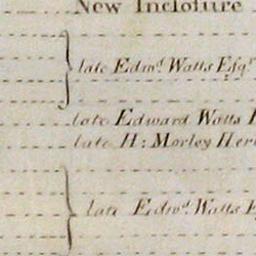 New Inclosure
late Edwd. Watts Esqr
late Edward Watts
late H: Morley
late Edwd. Watts